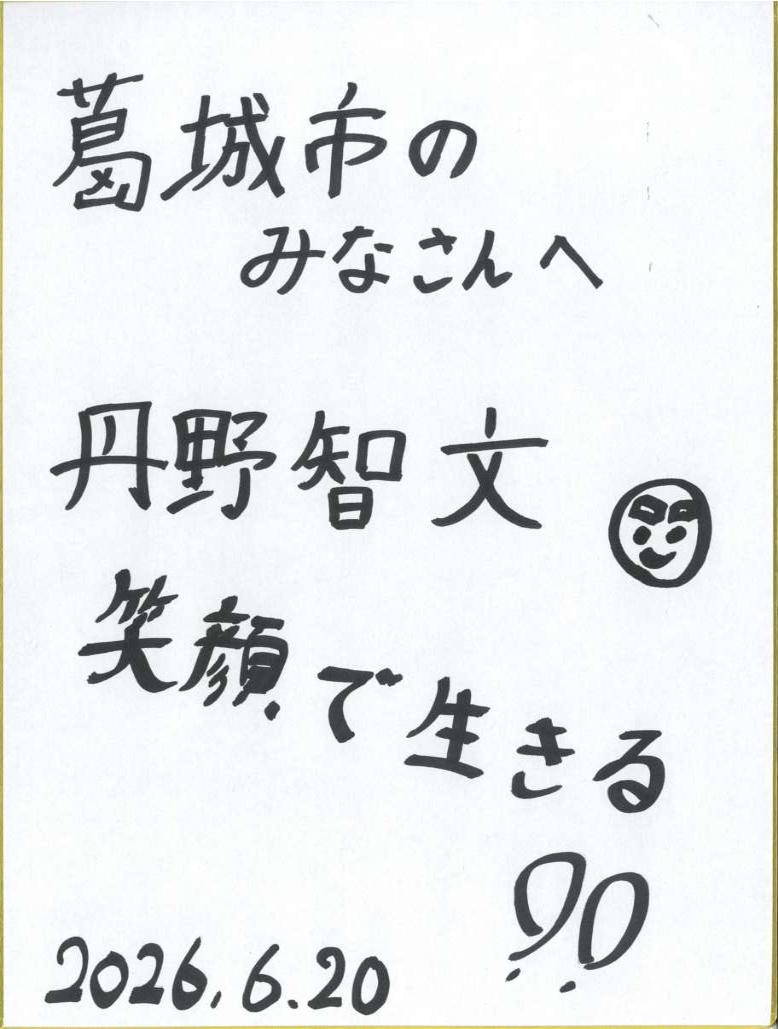 葛城市の
みなさんへ
丹野智文
笑顔で生きる
!!
2026.6.20